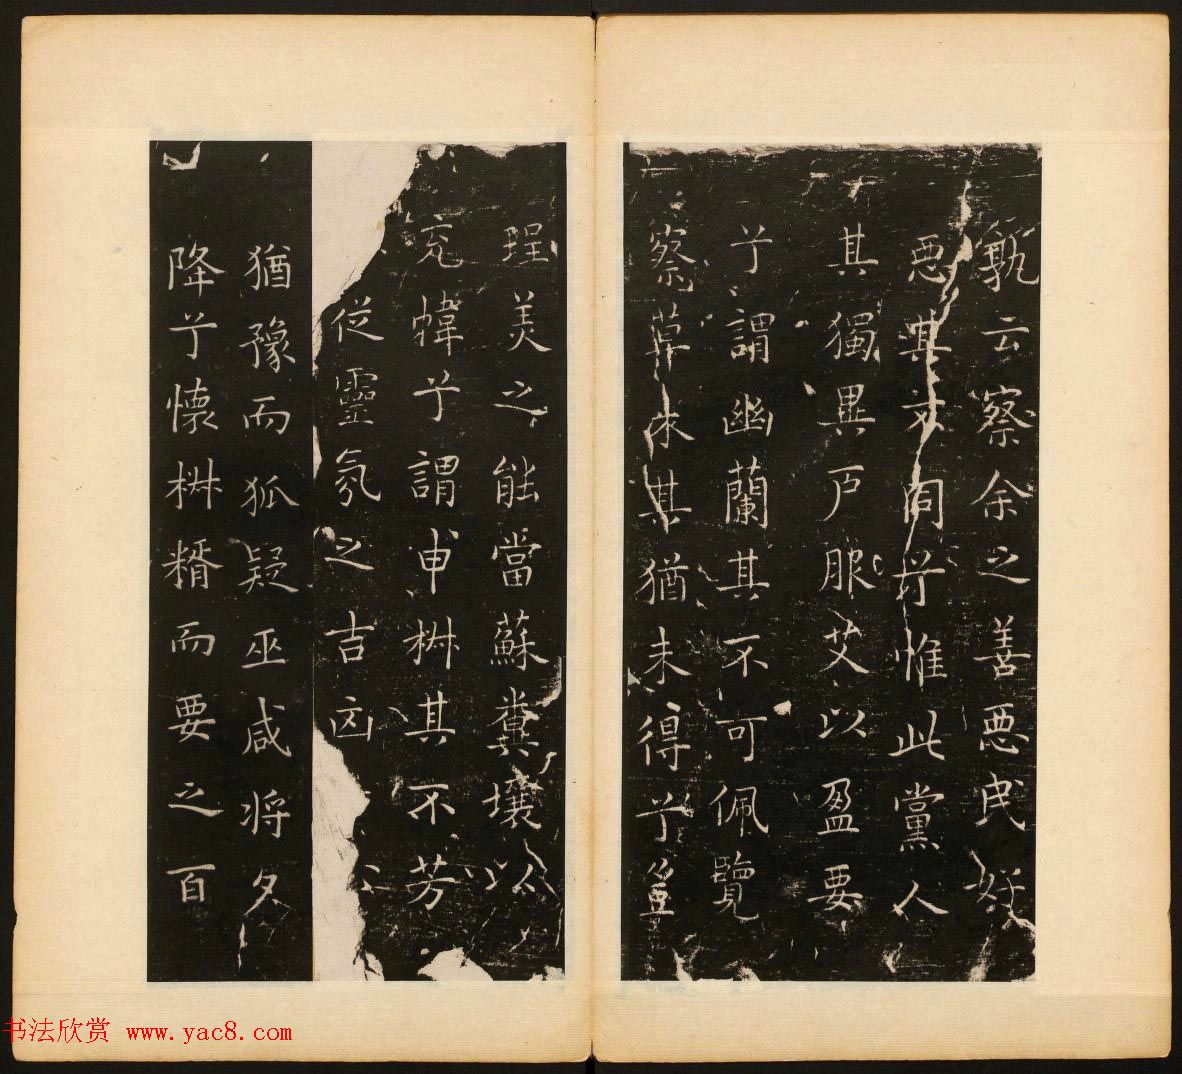 孰云察余之善惡民好
惡其不同兮惟此黨人
其獨異戶服艾以盈要
兮謂幽蘭其不可佩覽
察草木其猶未得兮豈
珵美之能當蘇糞壤以
充幃兮謂申椒其不芳
從靈氛之吉
猶豫而狐疑巫咸將夕
降兮懷椒糈而要之百
书法欣赏 www.yac8.com